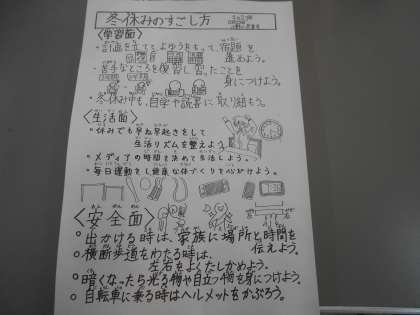 冬休みのすごし方
〈学習面〉
・計画を立て、よゆうをもって、宿題を
進めよう。
・苦手なところを復習し習ったことを
身につけよう。
・冬休み中も、自学や読書に取り組もう。
〈生活面〉
・休みでも早ね早起きをして
生活リズムを整えよう。
・メディアの時間を決めて生活しよう。
・毎日運動をし健康な体づくりを心がけよう。
〈安全面〉
・出かける時は、家族に場所と時間を
伝えよう。
・横断歩道をわたる時は、
左右をよくたしかめよう。
・暗くなったら光る物や目立つ物を身につけよう。
・自転車に乗る時はヘルメットをかぶろう。